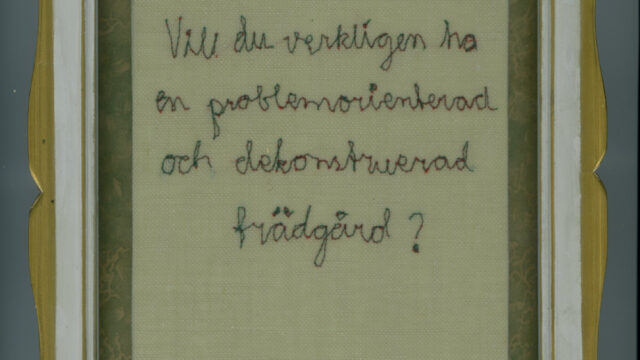 Vill du verkligen ha
en problemorienterad
och dekonstruerad
trädgård?